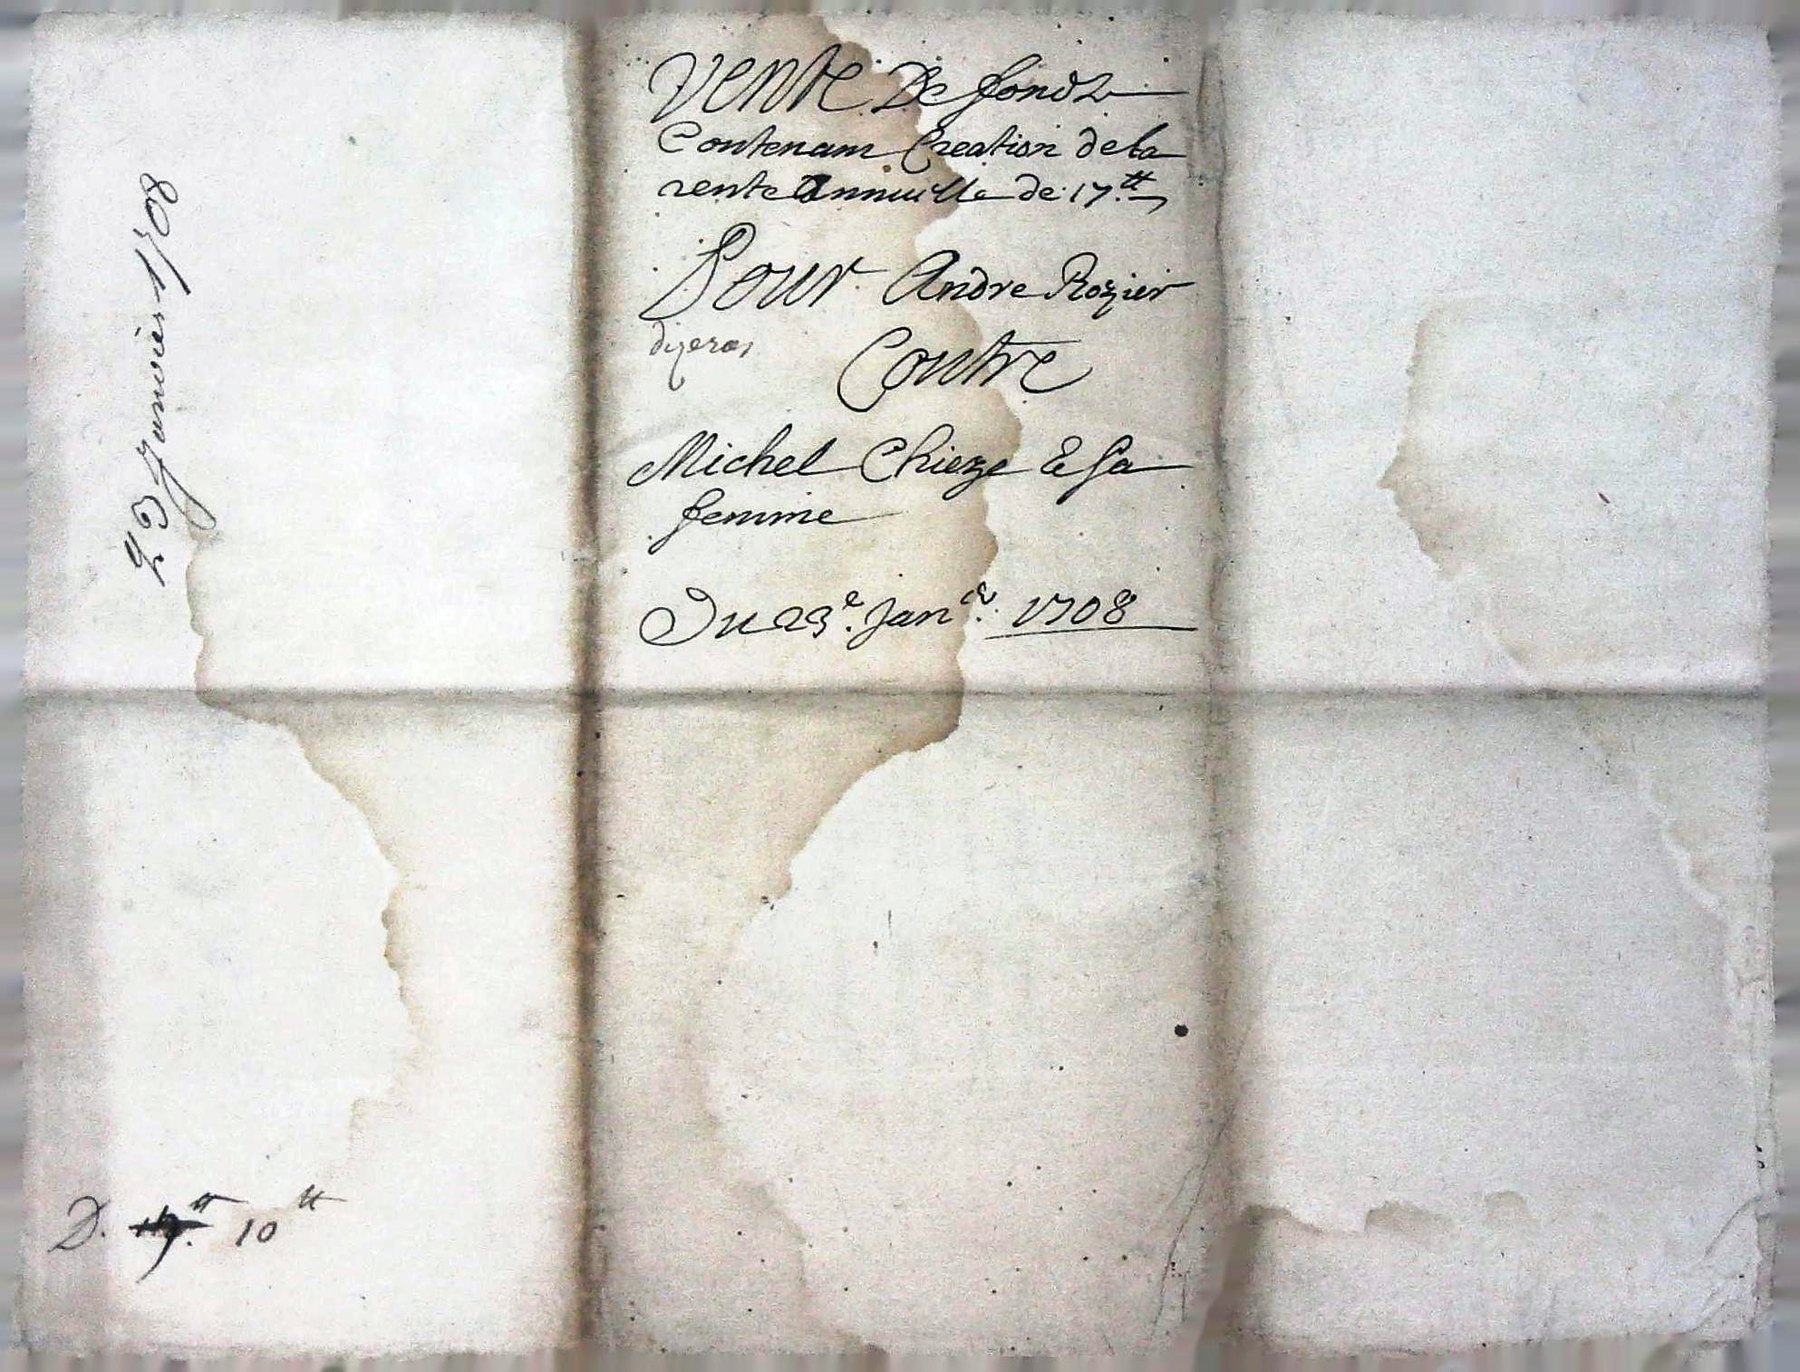 23 Janvier 1708
Vente De fondz
Contenam Creation de la
rente Annuelle de 17.tt
Pour Andre Rozier
Contre
Michel Chieze & Sa
femme
Du 23e. Janer. 1708
D. 10 tt